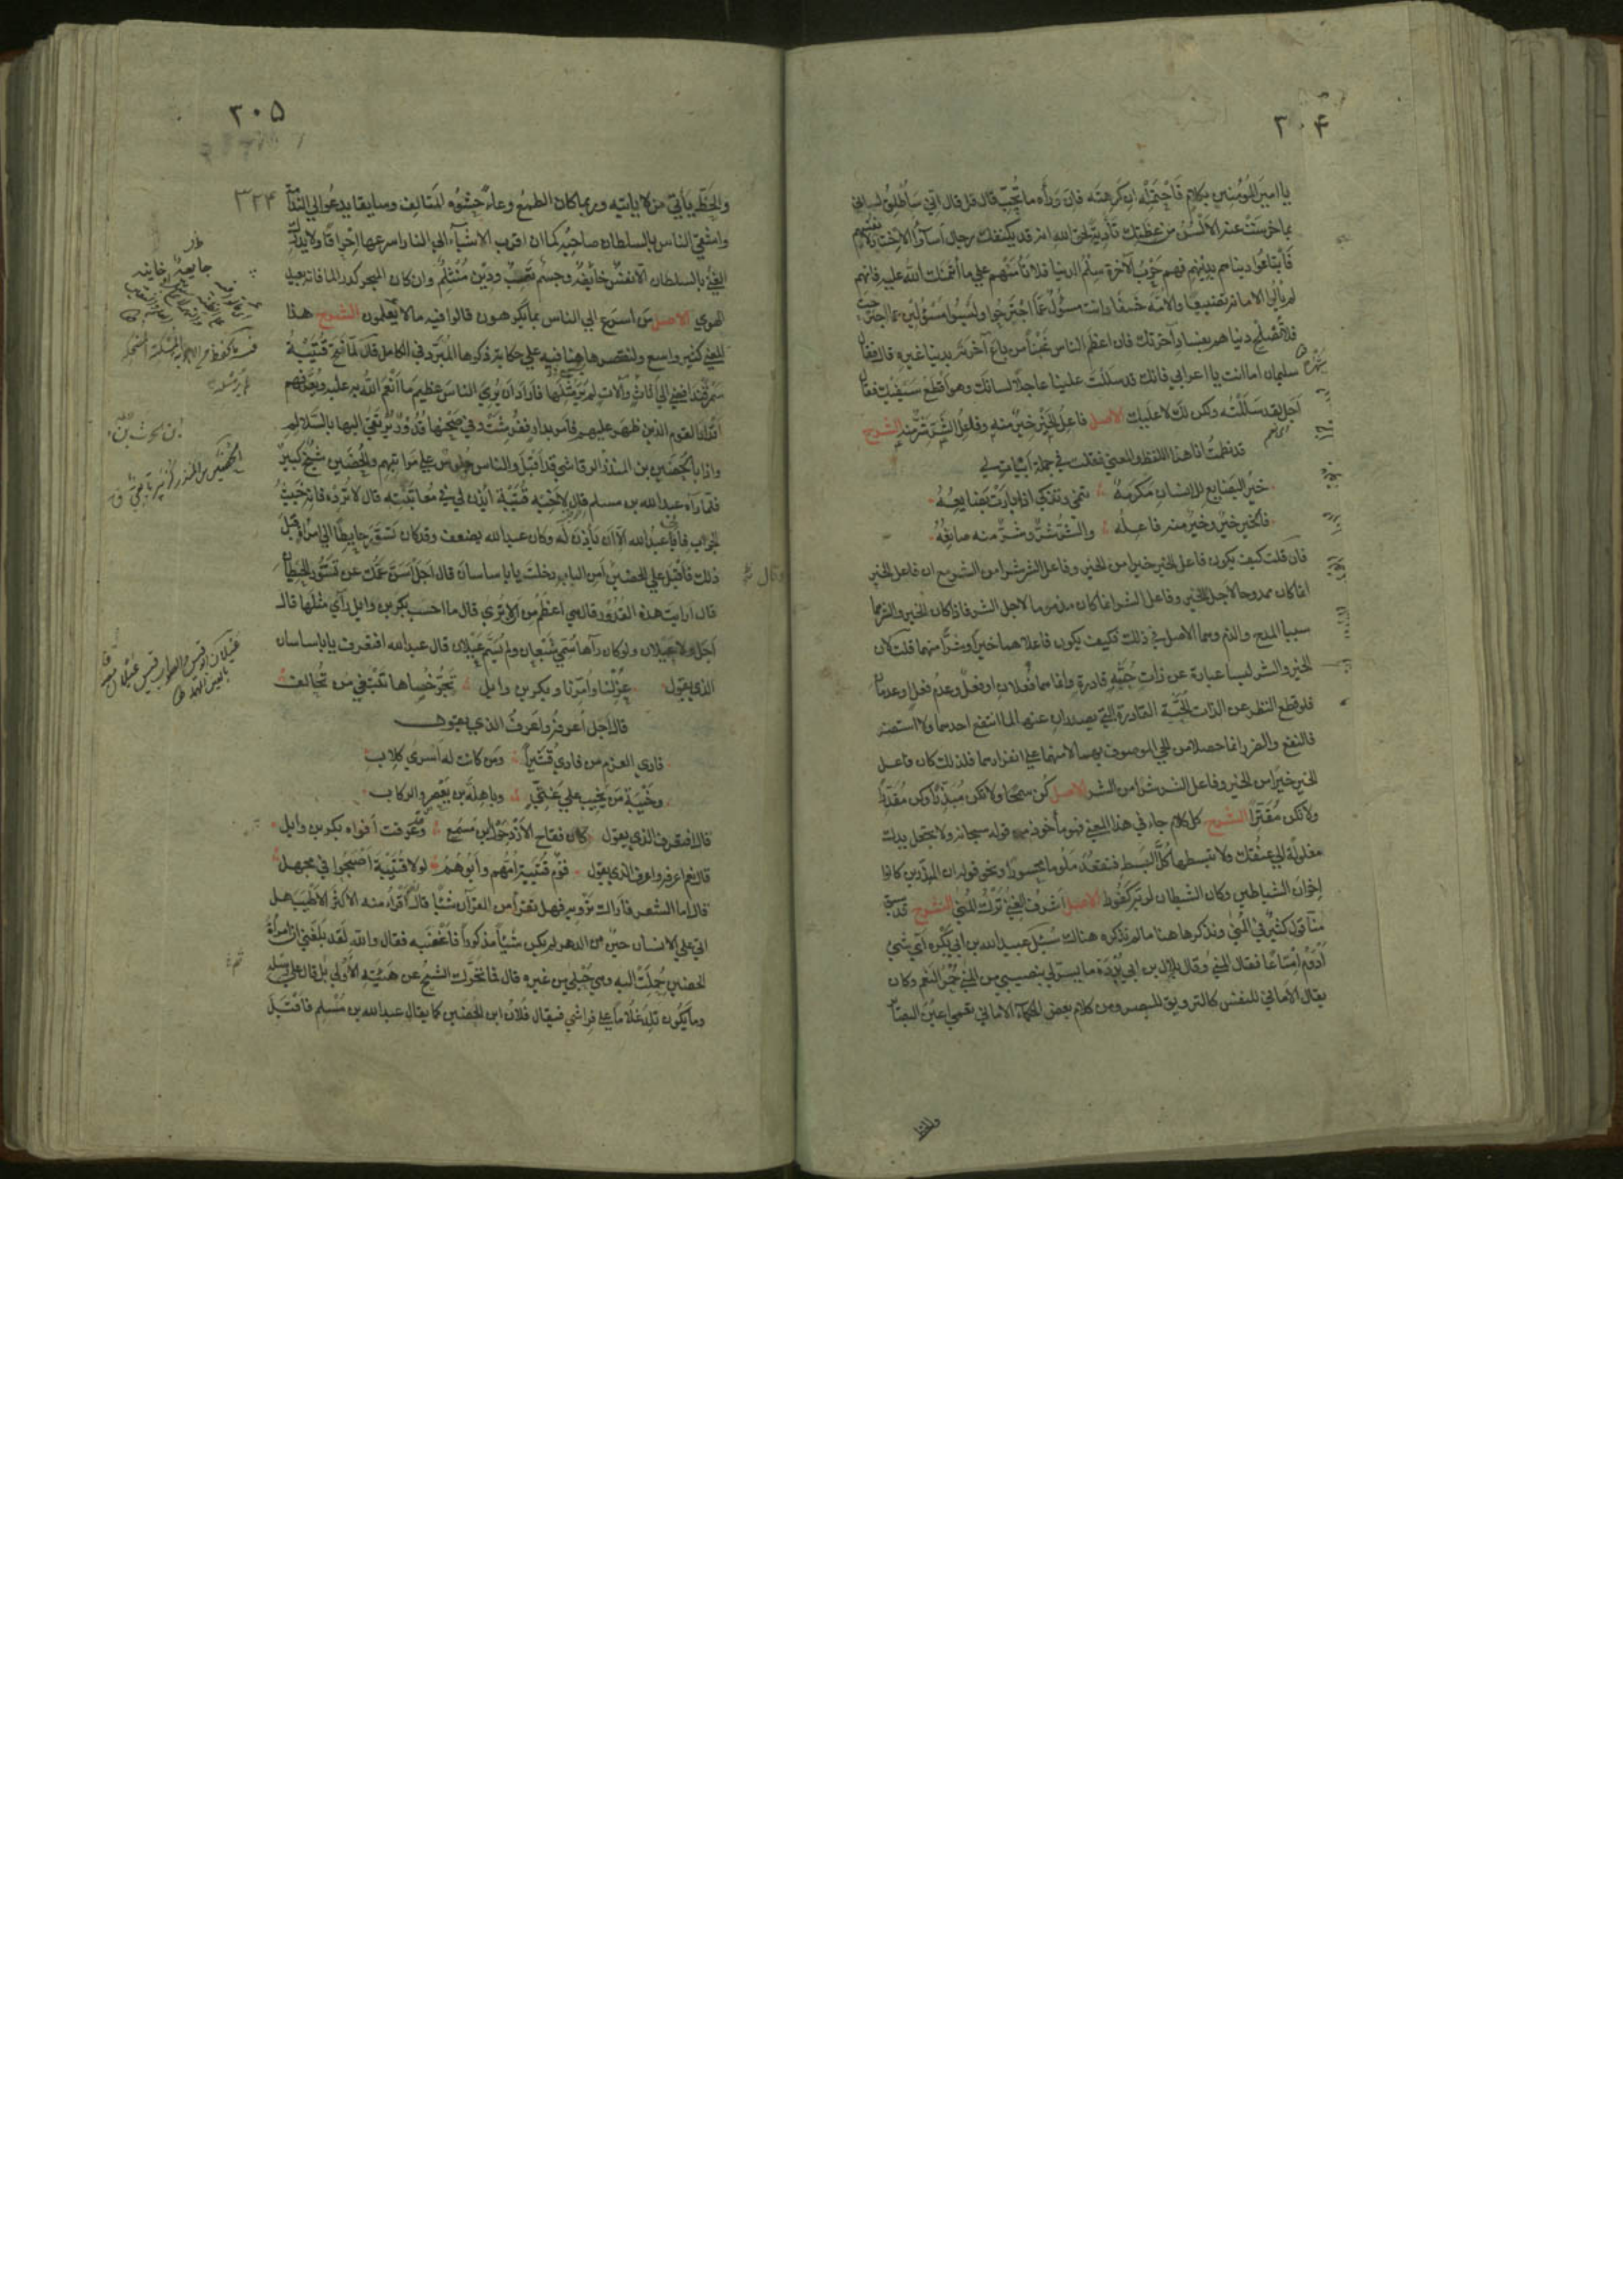 ۳۰۴
يا امير المؤمنين بكلام فاحتمله ان كرهته فان وراءه ما تحب قال قل قال اني سأطلق لساني
بما خرست عنه الألسن من عظتك تأدية لحق الله انه قد يكنفك رجال أساؤا الاختيار لانفسهم
فابتاعوا دنياهم بدينهم فهم حرب الآخرة سلم الدنيا فلا تأمنهم علي ما أئتمنك الله عليه فانهم
لم يألوا الامانة تضييعا والامة خسفا وانت مسؤل عما اجترحوا وليسوا مسؤلين عما اجترحت
فلا تصلح دنياهم بفساد آخرتك فان اعظم الناس غبنا من باع آخرته بدنيا غيره قال فقال
سليمان اما انت يا اعرابي فانك قد سللت علينا عاجلا لسانك وهو اقطع سيفيك فقال
اجل لقد سللته ولكن لك لا عليك الاصل فاعل الخير خير منه وفاعل الشر شر منه الشرح
قد نظمت انا هذا اللفظ والمعني فقلت في جملة ابيات لي
خير البضايع للانسان مكرمة تنمي وتزكي اذا بارت بضايعه
فالخير خير وخير منه فاعله والشر شر وشر منه صانعه
فان قلت كيف يكون فاعل الخير خيرا من الخير وفاعل الشر شرا من الشر مع ان فاعل الخير
انما كان ممدوحا لاجل الخير وفاعل الشر انما كان مذموما لاجل الشر فاذا كان الخير والشر هما
سببا المدح والذم وهما الاصل في ذلك فكيف يكون فاعلاهما خيرا وشرا منهما قلت لان
الخير والشر ليسا عبارة عن ذات حية قادرة وانما هما فعلان او فعل وعدم فعل او عدمان
فلو قطع النظر عن الذات الحية القادرة التي يصدران عنها لما انتفع احد بهما ولا استضر
فالنفع والضر انما حصلا من الحي الموصوف بهما لا منهما علي انفرادهما فلذلك كان فاعل
الخير خيرا من الخير وفاعل الشر شرا من الشر الاصل كن سمحا ولا تكن مبذرا وكن مقدرا
ولا تكن مقترا الشرح كل كلام جاء في هذا المعني فهو مأخوذ من قوله سبحانه ولا تجعل يدك
مغلولة الي عنقك ولا تبسطها كل البسط فتقعد ملوما محسورا ونحو قوله ان المبذرين كانوا
اخوان الشياطين وكان الشيطان لربه كفورا الاصل اشرف الغني ترك المني الشرح قد سبق
منا قول كثير في المني ونذكر ها هنا ما لم نذكره هناك سئل عبيد الله بن ابي بكره اي شيء
ادوم امتاعا فقال المني وقال بلال بن ابي بردة ما يسرني بنصيبي من المني حمر النعم وكان
يقال الاماني للنفس كالترويق للبصر ومن كلام بعض الحكماء الاماني تعمي اعين البصائر
والحظ
۳۰۵
۳۲۴
والحظ يأتي من لا يأتيه وربما كان الطمع وعاء حشوه المتالف وسايقا يدعو الي الندامة
واشقي الناس بالسلطان صاحبه كما ان اقرب الاشياء الي النار اسرعها احراقا ولا يدرك
الغني بالسلطان الا نفس خايفة وجسم تعب ودين منثلم وان كان البحر كدر الماء فانه بعيد
الهوي الاصل من اسرع الي الناس بما يكرهون قالوا فيه ما لا يعلمون الشرح هذا
المعني كثير واسع ولنقتصر ها هنا فيه علي حكاية ذكرها المبرد في الكامل قال لما فتح قتيبة
سمرقند افضي الي اثاث وآلات لم ير مثلها فاراد ان يري الناس عظيم ما انعم الله به عليه ويعرفهم
اقدار القوم الذين ظهر عليهم فامر بدار ففرشت وفي صحنها قدور يرتقي اليها بالسلالم
واذا بالحضين بن المنذر الرقاشي قد اقبل والناس جلوس علي مراتبهم والحضين شيخ كبير
فلما رآه عبد الله بن مسلم قال لاخيه قتيبة ائذن لي في معاتبته قال لا ترده فانه خبيث
الجواب فابي عبد الله الا ان يأذن له وكان عبد الله يضعف وقد كان تسور حايطا الي امرأة قبل
ذلك فاقبل علي الحضين وقال امن الباب دخلت يا باساسان قال اجل اسن عمك عن تسور الحيطان
قال ارايت هذه القدور قال هي اعظم من الا تري قال ما احسب بكر بن وايل رأي مثلها قال
اجل ولا عيلان ولو كان رآها سمي شبعان ولم يسم عيلان قال عبد الله افتعرف يا باساسان
الذي يقول عزلنا وامرنا وبكر بن وايل تجر خصاها تبتغي من تحالف
قال اجل اعرفه واعرف الذي يقول
فادي العزم من فادي قشيرا ومن كانت له اسري كلاب
وخيبة من يخيب علي غني وباهلة بن يعصر والركاب
قال افتعرف الذي يقول كان فقاح الازد حول ابن مسمع وقد عرقت افواه بكر بن وايل
قال نعم اعرفه واعرف الذي يقول قوم قتيبة امهم وابوهم لولا قتيبة اصبحوا في مجهل
قال اما الشعر فاراك ترويه فهل تقرأ من القرآن شيئا قال اقرأ منه الاكثر الاطيب هل
اتي علي الانسان حين من الدهر لم يكن شيئا مذكورا فاغضبه فقال والله لقد بلغني ان امرأة
الحضين حملت اليه وهي حبلي من غيره قال فما تحرك الشيخ عن هيئته الاولي بل قال علي رسله
وما يكون تلد غلاما علي فراشي فيقال فلان ابن الحضين كما يقال عبد الله بن مسلم فاقبل